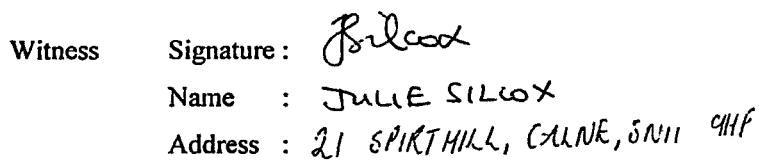 Witness Signature : JSilcox
Name : JULIE SILCOX
Address : 21 SPIRTHILL, CALNE, SN11 9HF